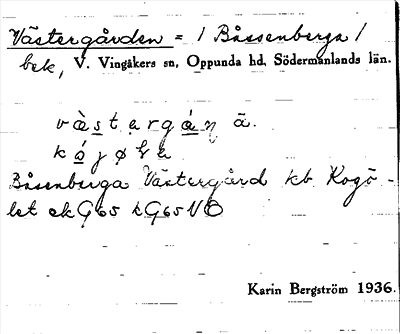 Västergården = / Båssenberga /
bek, V. Vingåkers sn, Oppunda hd, Södermanlands län.
västargån ä.
kájøka
Båsenberga Västergård kb Kogö-
let ekG65 kG65NO
Karin Bergström 1936.